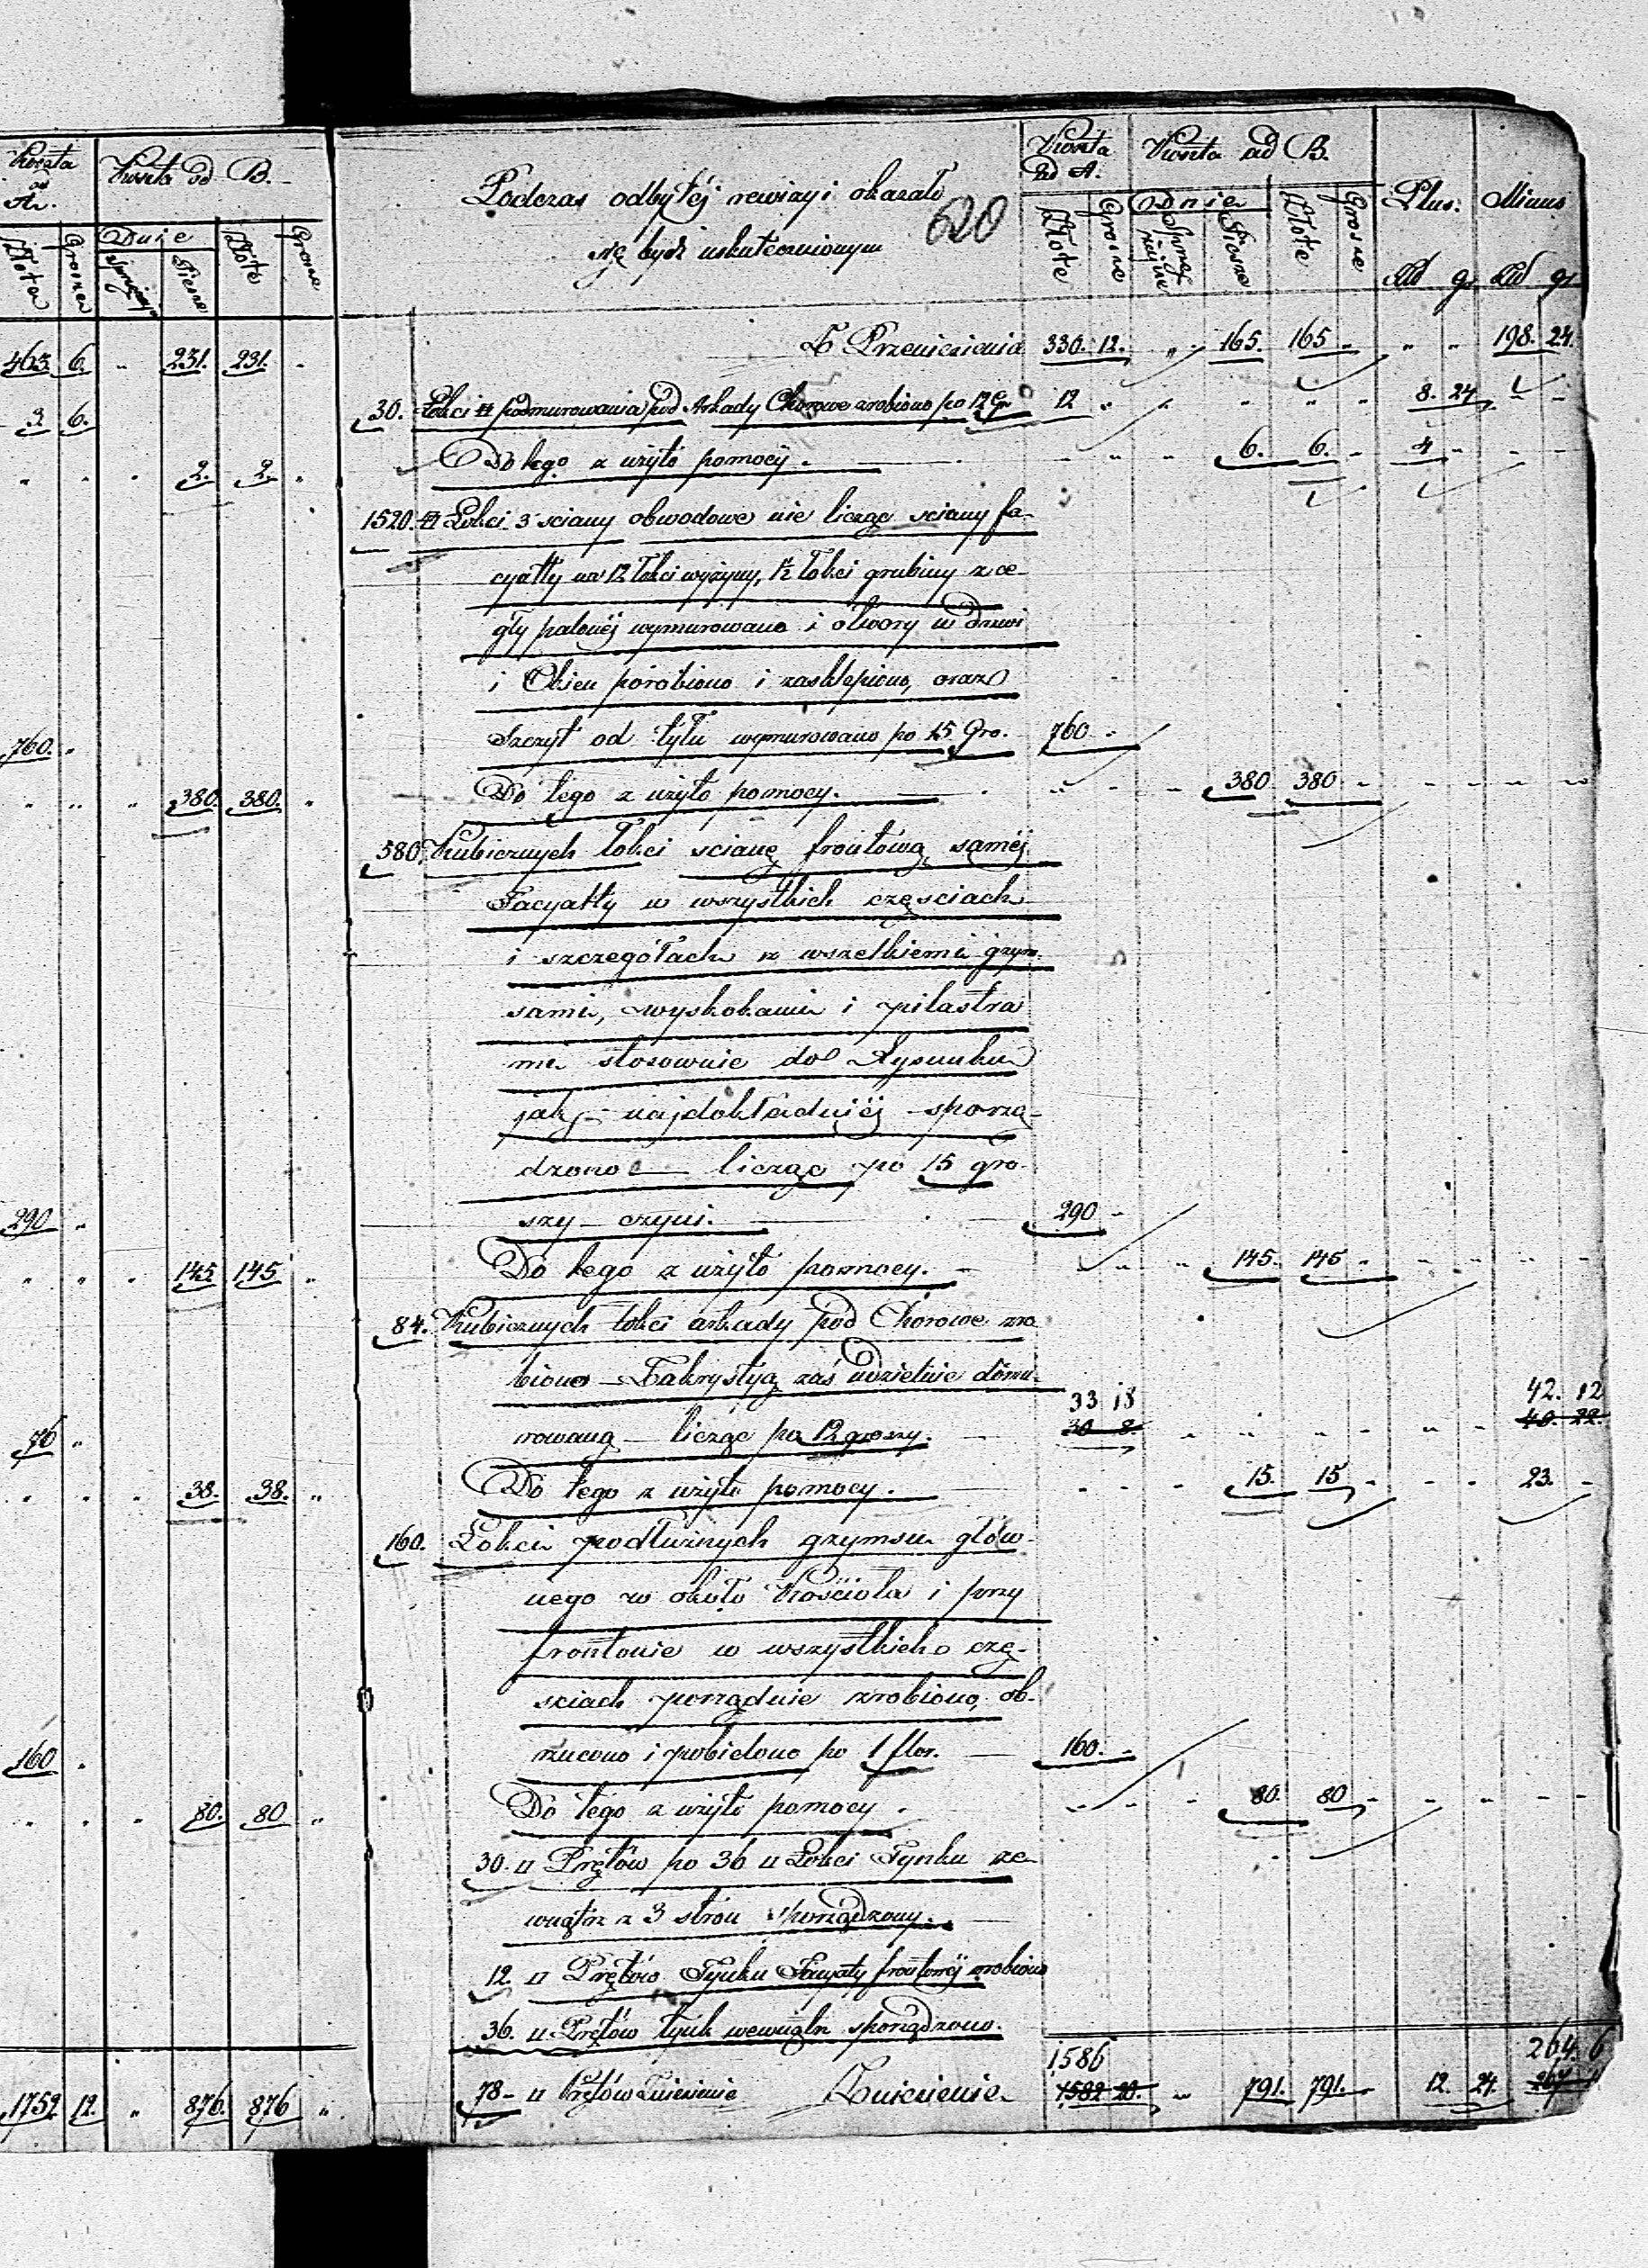 Koszta ad A.
Koszta ad B.
Złote Grosze Dnie Sprzężajne Piesze Złote Grosze
463. 6. " 231. 231. "
3 6.
" " " 2. 2. "
760. "
" " " 380. 380. "
290 "
" " " 145 145 "
76 "
" " " 38. 38. "
160 "
" " " 80. 80 "
1752. 12. " 876. 876 "
Podczas odbytéj rewizyi okazało
się bydź uskutecznionym
620
Koszta ad A. Koszta ad B. Plus. Minus
Złote Grosze Dnie Sprzężajne Piesze Złote Grosze Złd gr Złd gr
Z Przeniesienia 330. 12. " 165. 165 " " " 198. 24.
30. Łokci □ podmurowania pod Arkady Chorowe zrobiono po 12 Gr 12 " " " " " 8. 24 " "
Do tego z użyto pomocy. " " " 6. 6. " 4 " " "
1520. □ Łokci 3 sciany obwodowe nie licząc sciany fa-
cyatty na 12 Łokci wyżyny, 1½ Łokci grubiny z ce-
gły palonéj wymurowano i otwory w Drzwi
i Okien porobiono i zasklepiono, oraz
Szczyt od tyłu wymurowano po 15 Gro. 760 "
Do tego z użyto pomocy. " " " 380 380 " " " " "
580. Kubicznych Łokci scianę frontową saméj
Facyatty w wszystkich częsciach
i szczegółach z wszelkiemi gzym-
sami, wyskokami i pilastra
mi stosownie do Rysunku
jak najdokładniéj sporzą-
dzono licząc po 15 gro-
szy czyni. 290 "
Do tego z użyto pomocy. " " " 145. 145 " " " " "
84. Kubicznych łokci arkady pod Chorowe zro
biono Zakrystyą zaś udzielnie domu-
rowaną licząc po 12 groszy. 33 18 30 8 " " " " " " " 42. 12 40. 22.
Do tego z użyto pomocy. " " " 15. 15 " " " 23. "
160. Łokci podłużnych gzymsu głów-
nego w około Kościoła i przy
frontonie w wszystkich czę-
sciach porządnie zrobiono, ob-
rzucono i pobielono po 1 flor. 160. "
Do tego z użyto pomocy. " " " 80. 80 " " " " "
30. □ Prętów po 36 □ Łokci Tynku ze
wnątrz z 3 stron sporządzony.
12. □ Prętów Tynku Facyaty frontowéj zrobiono
36. □ Prętów tynk wewnątrz sporządzono.
78 □ Prętów Zniesienie Zniesienie 1586 1582 20. " 791. 791. " 12. 24. 264. 6